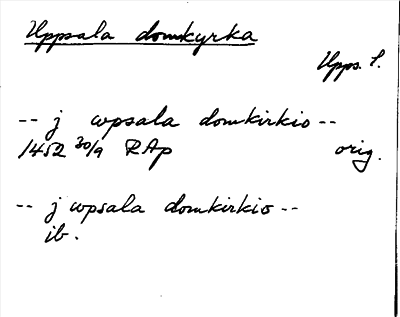 Uppsala domkyrka
Upps. l.
-- j wpsala domkirkio --
1452 30/9 RAp orig.
-- j wpsala domkirkio --
ib.